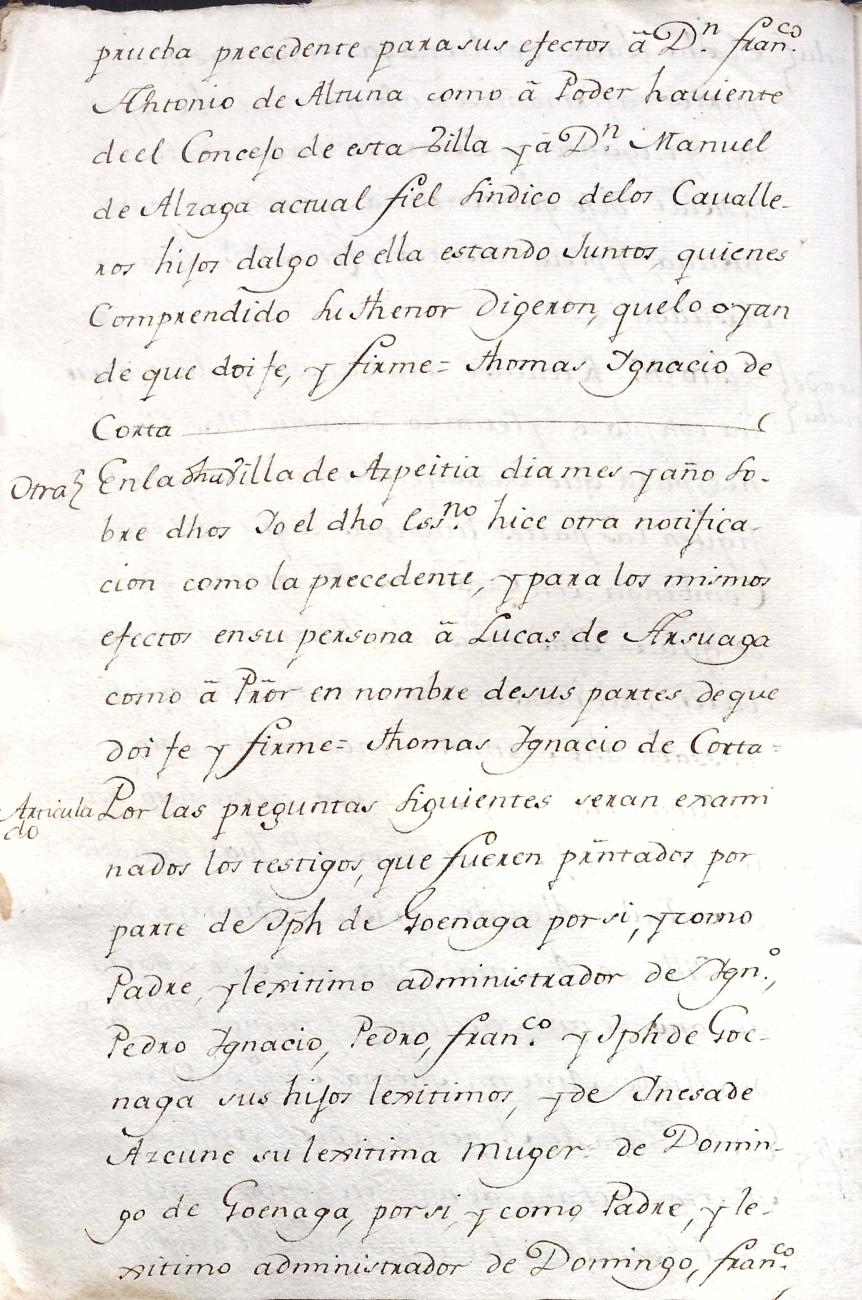 prueba precedente para sus efectos â D.ⁿ fran.ᶜᵒ
Antonio de Altuna como â Poder haviente
de el Concejo de esta villa y â D.ⁿ Manuel
de Alzaga actual fiel Sindico de los Cavalle-
ros hijos dalgo de ella estando Juntos, quienes
Comprendido su thenor Digeron, que lo oyan
de que doi fe, y firme= Thomas Ignacio de
Corta
Otra} En la dha villa de Azpeitia dia mes y año so-
bre dhos Yo el dho Ess.ⁿᵒ hice otra notifica-
cion como la precedente, y para los mismos
efectos en su persona â Lucas de Arsuaga
como â Prõr en nombre de sus partes de que
Doi fe y firme= Thomas Ignacio de Corta=
Articula
do
Por las preguntas siguientes seran exami
nados los testigos, que fueren prñtados por
parte de Jph de Goenaga por si, y como
Padre, y lexitimo administrador de Ign.º,
Pedro Ignacio, Pedro, fran.ᶜᵒ y Jph de Goe-
naga sus hijos lexitimos, y de Inesa de
Azcune su lexitima Muger= de Domin-
go de Goenaga, por si, y como Padre, y le-
xitimo administrador de Domingo, fran.ᶜᵒ,